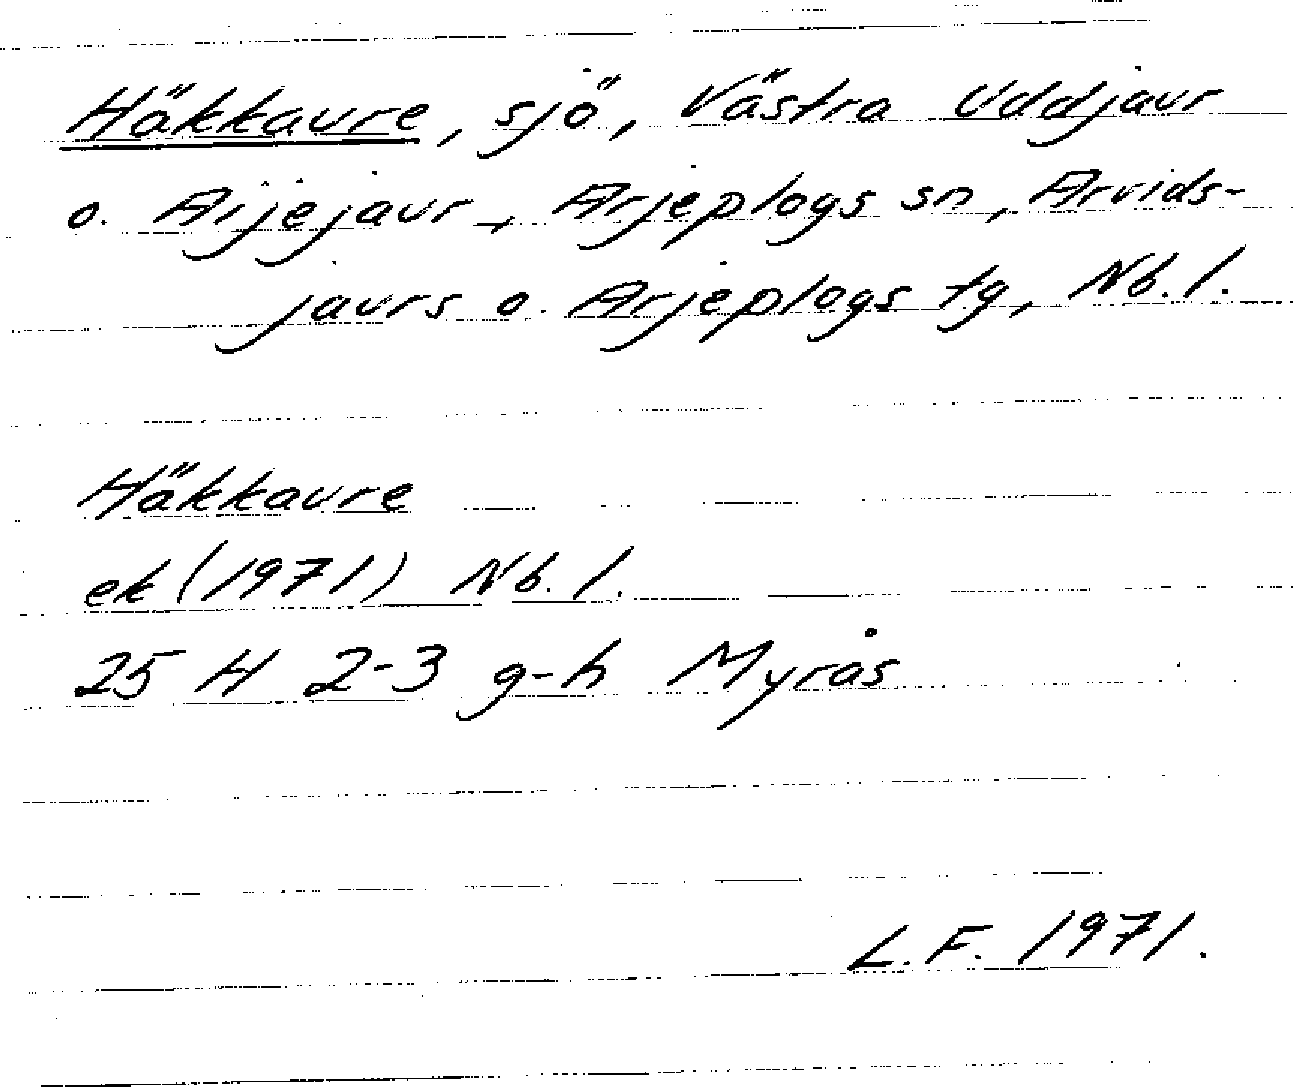 Häkkaure, sjö, Västra Uddjaur
o. Aijejaur, Arjeplogs sn, Arvids-
jaurs o. Arjeplogs tg, Nb. l.
Häkkaure
ek (1971) Nb. l.
25 H 2-3 g-h Myrås
L.F. 1971.